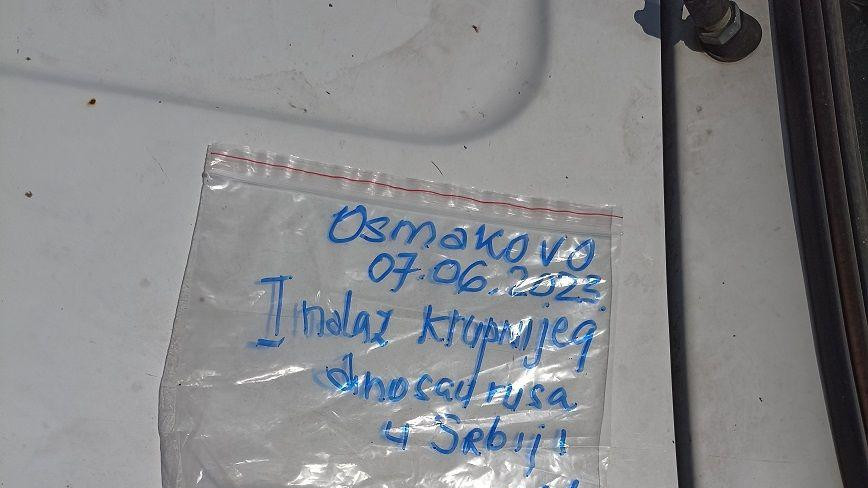 Osmakovo
07.06.2023.
II nalaz krupnijeg
dinosaurusa
u Srbiji